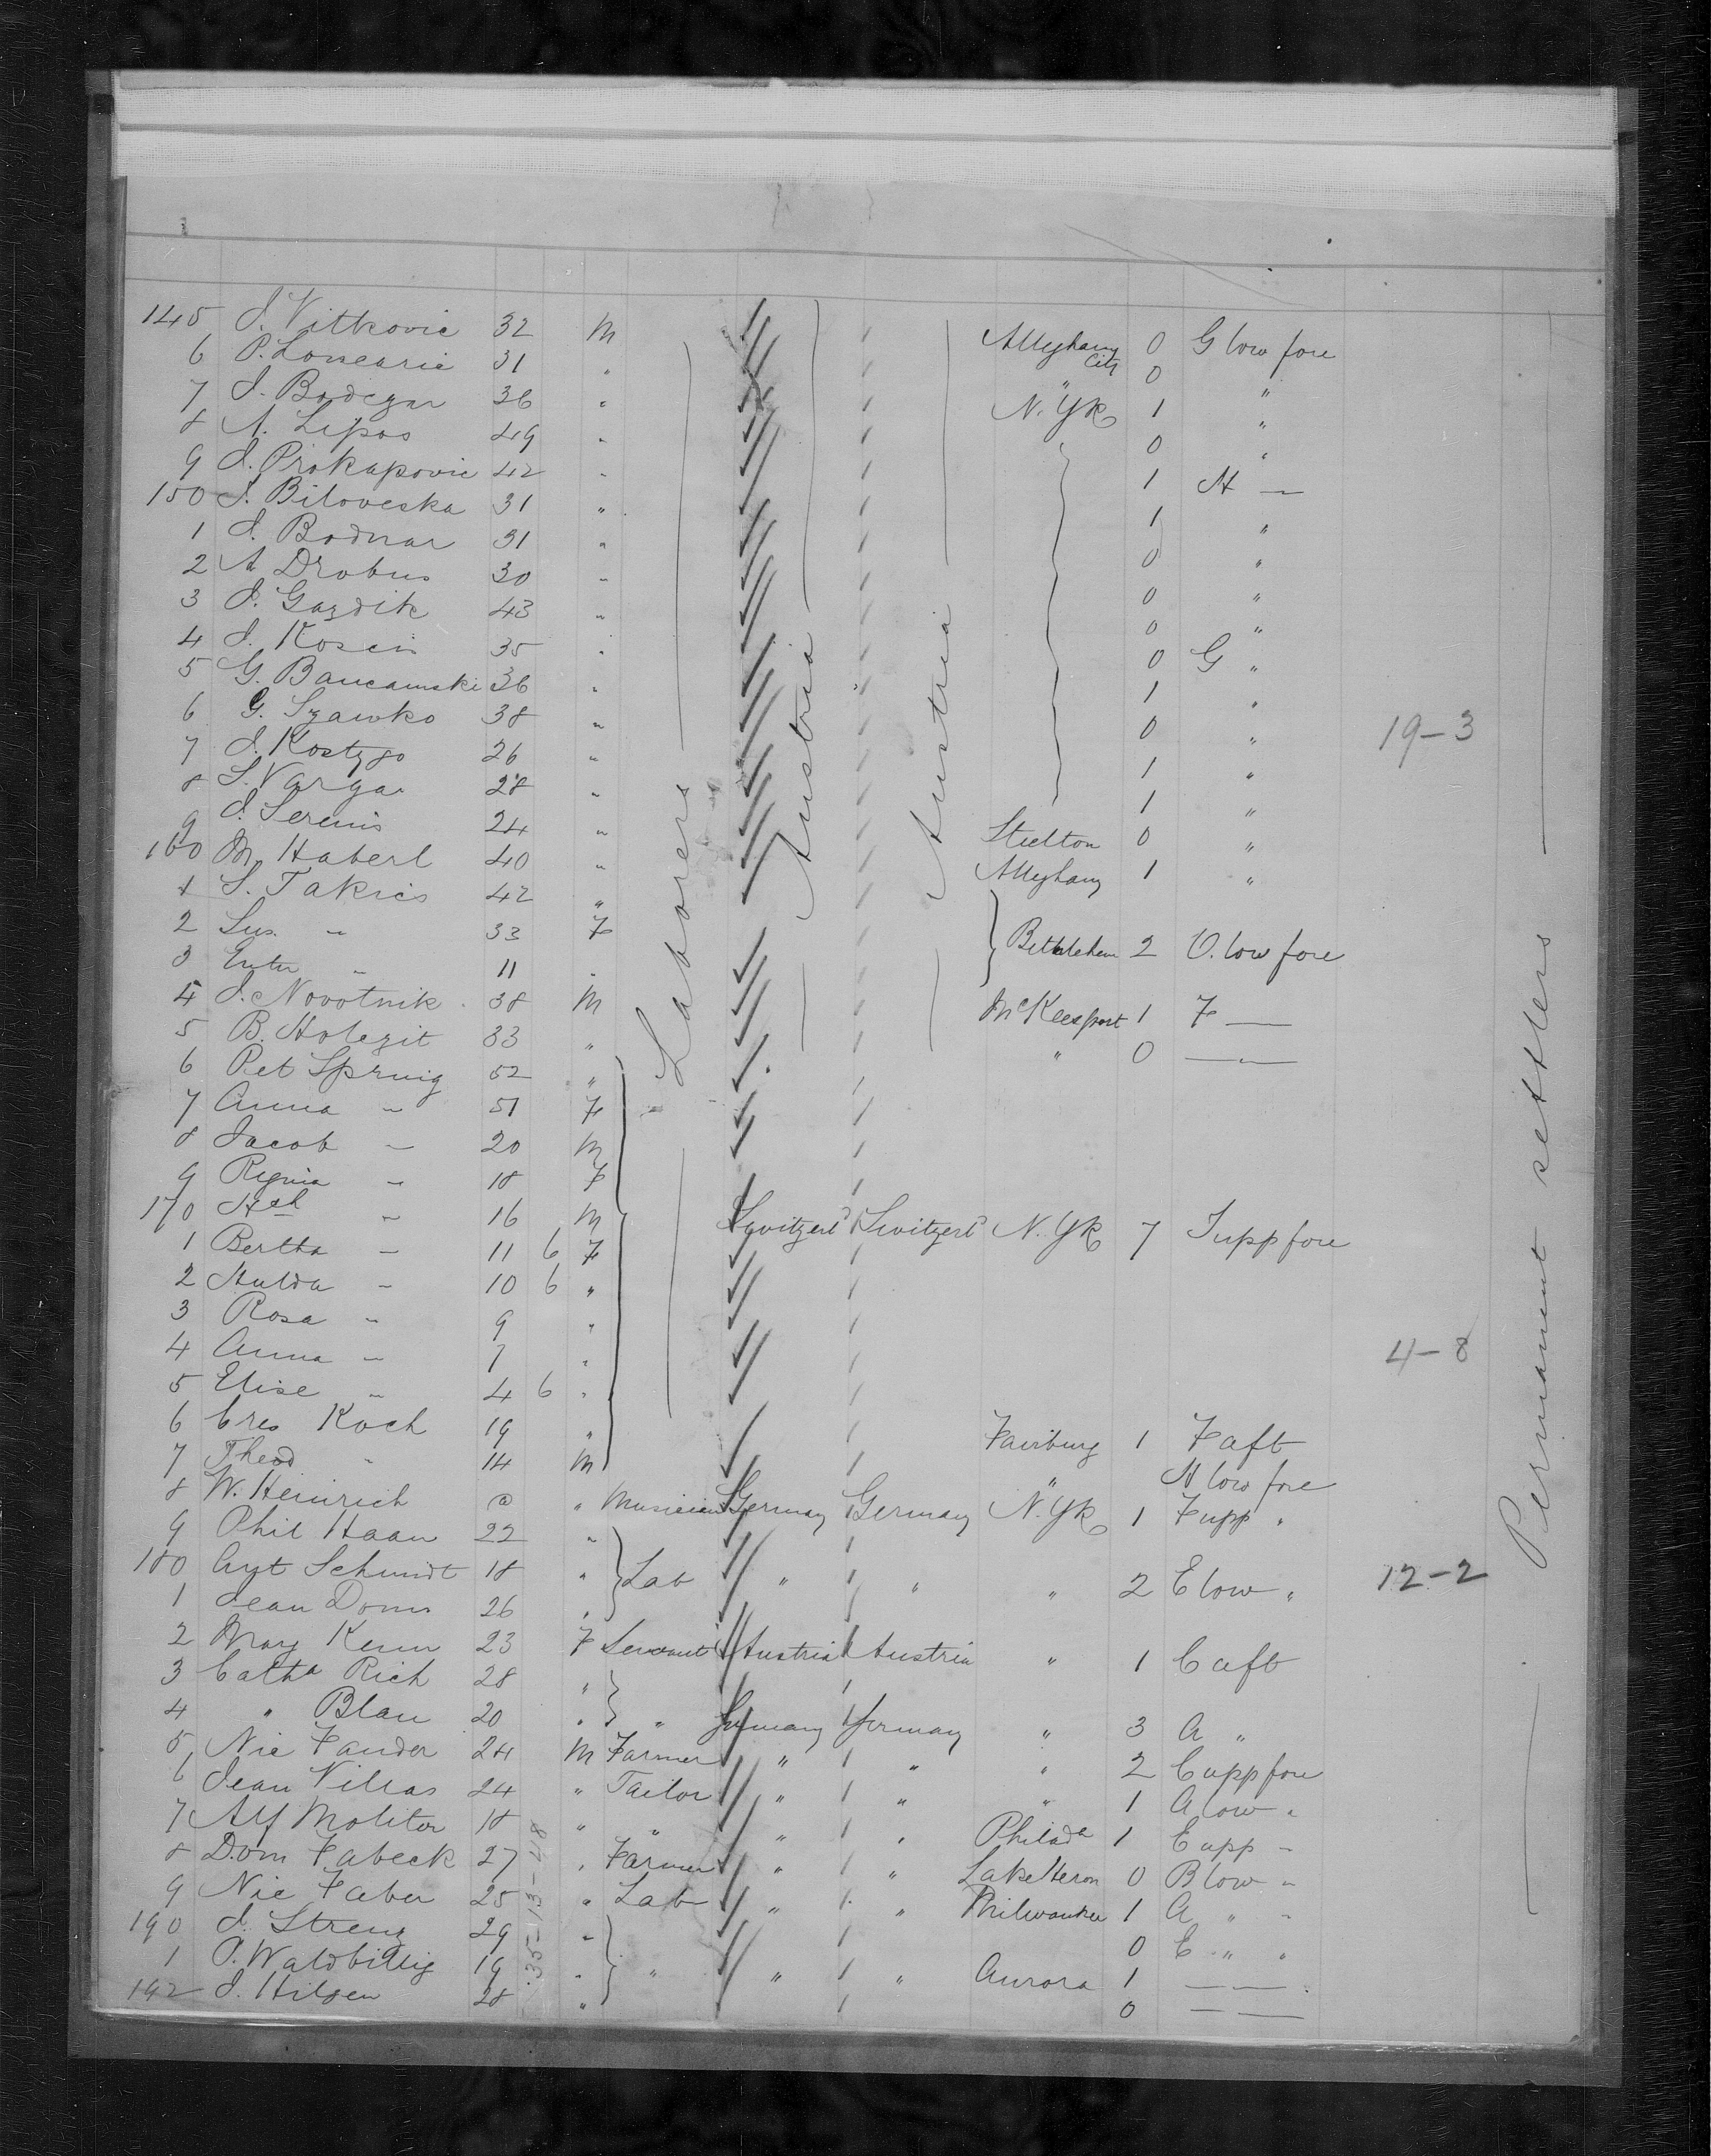 145 J. Vitkovic 32 M Alleghany City 0 G low fore
6 P. Lonearic 31 " " 0 "
7 J. Bodegar 36 " N. Yk 1 "
8 A. Lipos 49 " 0 "
9 J. Prokapovic 42 " 1 H —
150 J. Biloveska 31 " 1 "
1 J. Bodnar 31 " 0 "
2 A Drobus 30 " 0 "
3 J. Gazdik 43 " 0 "
4 J. Koscis 35 " 0 G "
5 G. Bancanski 36 " 1 "
6 G. Szawko 38 " 0 "
19-3
7 J. Kostyso 26 " 1 "
8 S. Varga 28 " 1 "
9 J. Serenis 24 " Steelton 0 "
160 M. Haberl 40 " Alleghany 1 "
1 S. Takics 42 "
2 Sus. " 33 F Bethlehem 2 O. low fore
3 " 11 "
4 J. Novotnik 38 M McKeesport 1 F —
5 B. Holezit 33 " " 0 — " —
Laborers Austria Austria
6 Pet Spruig 52 "
7 Anna " 51 F
8 Jacob — 20 M
9 Regina " 18 F
170 Hch " 16 M Switzerld Switzerld N. Yk 7 I upp fore
1 Bertha — 11 6 F
2 Hulda " 10 6 "
3 Rosa " 9 "
4 Anna " 7 "
4-8
5 Elise " 4 6 "
6 Cres Koch 19 " Fairburg 1 F aft
7 Theod " 14 M H low fore
8 W. Heinrich @ " Musician Germany Germany N. Yk 1 F upp "
9 Phil Haan 22 "
180 Agt Schmidt 18 " Lab " " " 2 E low "
12-2
1 Jean Doms 26 "
2 Mary Kenn 23 F Servant Austria Austria " 1 C aft
3 Catha Rich 28 "
4 " Blau 20 " " Germany Germany " 3 A "
5 Nic Fander 24 M Farmer " " " 2 C upp fore
6 Jean Vilras 24 " Tailor " " " 1 A low "
7 Alf Molitor 18 " " " " Philada 1 E upp "
8 Dom Fabeck 27 " Farmer " " Lake Heron 0 B low "
9 Nic Faber 25 " Lab " " Milwaukee 1 A " "
190 J. Streng 29 " 0 E " "
1 P. Waldbillig 19 " " " " Aurora 1 — —
192 J. Hilgen 28 " 0 — —
35-13-48
Permanent settlers